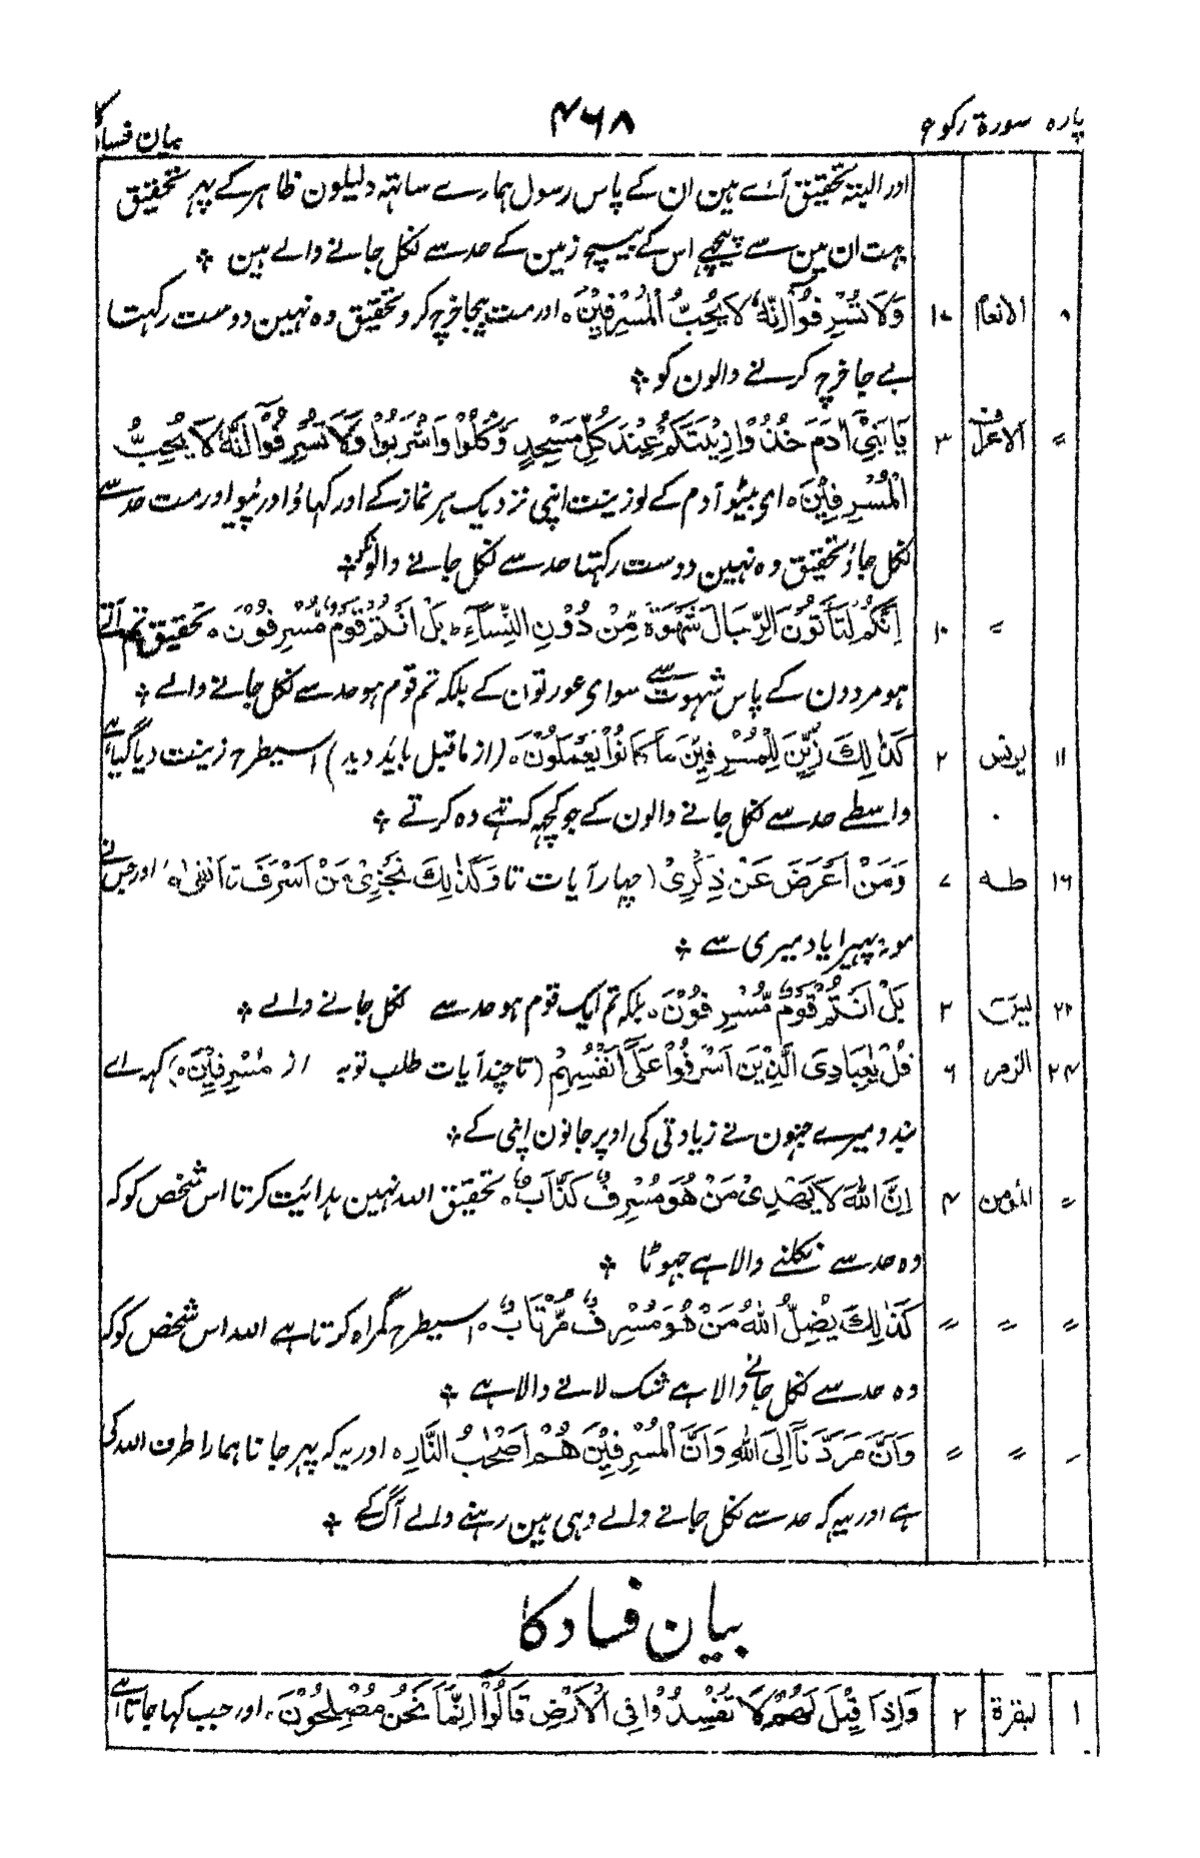 پارہ سورۃ رکوع ۴۶۸ بیان فساد کا
اور البتہ تحقیق آئے ہین ان کے پاس رسول ہمارے ساتہہ دلیلون ظاہر کے پہر تحقیق
بہت ان مین سے پیچہے اس کے بیچ زمین کے حد سے نکل جانے والے ہین ٭
۸ الانعام ۱۰ وَلَا تُسْرِفُوْٓا اِنَّهٗ لَا يُحِبُّ الْمُسْرِفِيْنَ ۝ اور مت بیجا خرچ کرو تحقیق وہ نہین دوست رکہتا
بے جا خرچ کرنے والون کو ٭
〃 الاعراف ۳ يَا بَنِيْٓ اٰدَمَ خُذُوْا زِيْنَتَكُمْ عِنْدَ كُلِّ مَسْجِدٍ وَّكُلُوْا وَاشْرَبُوْا وَلَا تُسْرِفُوْٓا اِنَّهٗ لَا يُحِبُّ
الْمُسْرِفِيْنَ ۝ ای بیٹو آدم کے لو زینت اپنی نزدیک ہر نماز کے اور کہاؤ اور پیو اور مت حد سے
نکل جاؤ تحقیق وہ نہین دوست رکہتا حد سے نکل جانے والونکو ٭
〃 ۱۰ اِنَّكُمْ لَتَاْتُوْنَ الرِّجَالَ شَهْوَةً مِّنْ دُوْنِ النِّسَآءِ ط بَلْ اَنْتُمْ قَوْمٌ مُّسْرِفُوْنَ ۝ تحقیق تم آتے
ہو مردون کے پاس شہوت سے سوای عورتون کے بلکہ تم قوم ہو حد سے نکل جانے والے ٭
۱۱ یونس ۲ كَذٰلِكَ زُيِّنَ لِلْمُسْرِفِيْنَ مَا كَانُوْا يَعْمَلُوْنَ ۝ (از ماقبل باید دید) اسیطرح زینت دیا گیا ہے
واسطے حد سے نکل جانے والون کے جو کچہہ کہ تہے وہ کرتے ٭
۱۶ طہ ۷ وَمَنْ اَعْرَضَ عَنْ ذِكْرِيْ (چہار آیات تا وَكَذٰلِكَ نَجْزِيْ مَنْ اَسْرَفَ تا اَبْقٰى ۝ اور جس نے
مونہہ پہیرا یاد میری سے ٭
۲۲ یٰسٓ ۲ بَلْ اَنْتُمْ قَوْمٌ مُّسْرِفُوْنَ ۝ بلکہ تم ایک قوم ہو حد سے نکل جانے والے ٭
۲۴ الزمر ۶ قُلْ يٰعِبَادِيَ الَّذِيْنَ اَسْرَفُوْا عَلٰٓى اَنْفُسِهِمْ (تا چند آیات طلب توبہ از مُسْرِفِيْنَ ۝) کہہ اے
بندو میرے جنہون نے زیادتی کی اوپر جانون اپنی کے ٭
〃 المؤمن ۴ اِنَّ اللّٰهَ لَا يَهْدِيْ مَنْ هُوَ مُسْرِفٌ كَذَّابٌ ۝ تحقیق اللہ نہین ہدائیت کرتا اس شخص کو کہ
وہ حد سے نکلنے والا ہے جہوٹا ٭
〃 〃 〃 كَذٰلِكَ يُضِلُّ اللّٰهُ مَنْ هُوَ مُسْرِفٌ مُّرْتَابٌ ۝ اسیطرح گمراہ کرتا ہے اللہ اس شخص کو کہ
وہ حد سے نکل جانے والا ہے شک لانے والا ہے ٭
〃 〃 〃 وَاَنَّ مَرَدَّنَآ اِلَى اللّٰهِ وَاَنَّ الْمُسْرِفِيْنَ هُمْ اَصْحٰبُ النَّارِ ۝ اور یہ کہ پہر جانا ہمارا طرف اللہ کی
ہے اور یہ کہ حد سے نکل جانے والے وہی ہین رہنے والے آگ کے ٭
بیان فساد کا
۱ بقرۃ ۲ وَاِذَا قِيْلَ لَهُمْ لَا تُفْسِدُوْا فِي الْاَرْضِ قَالُوْٓا اِنَّمَا نَحْنُ مُصْلِحُوْنَ ۝ اور جب کہا جاتا ہے